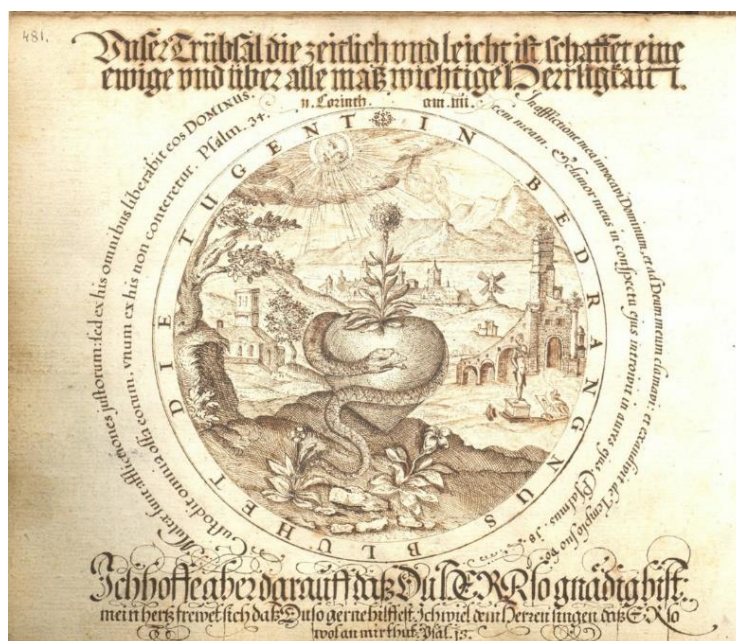 481.
Vnser Trübsal die zeitlich vnd leicht ist schaffet eine
ewige vnd über alle maß wichtige Herrligkait
ii. Corinth. am. iiii.
IN BEDRANGNUS BLUHET DIE TUGENT
Multæ sunt afflictiones justorum: sed ex his omnibus liberabit eos DOMINUS.
Custodit omnia ossa eorum, vnum ex his non conteretur. Psalm. 34.
In afflictione mea invocavi Dominum, et ad Deum meum clamavi: et exaudivit de Templo suo vocem meam, & clamor meus in conspectu ejus introivit in aures ejus
Ich hoffe aber darauff daß Du HERR so gnädig bist:
mein hertz frewet sich daß Du so gerne hilffest. Ich wiel dem Herzen singen daß ER so
wol an mir thut. Psal. 13.